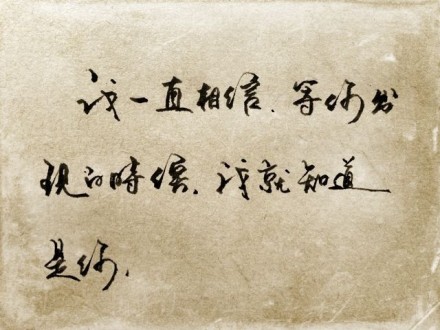 我一直相信、等你出
現的時候、我就知道
是你.